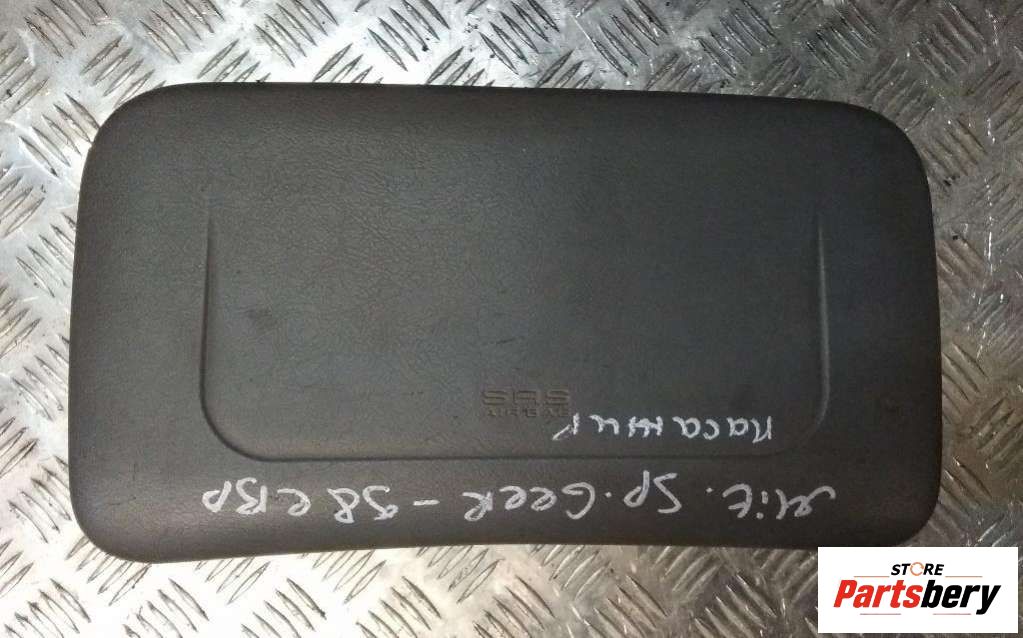 SRS
AIRBAG
Mit. Sp. Geer - 98 евр
пасажир
STORE
Partsbery